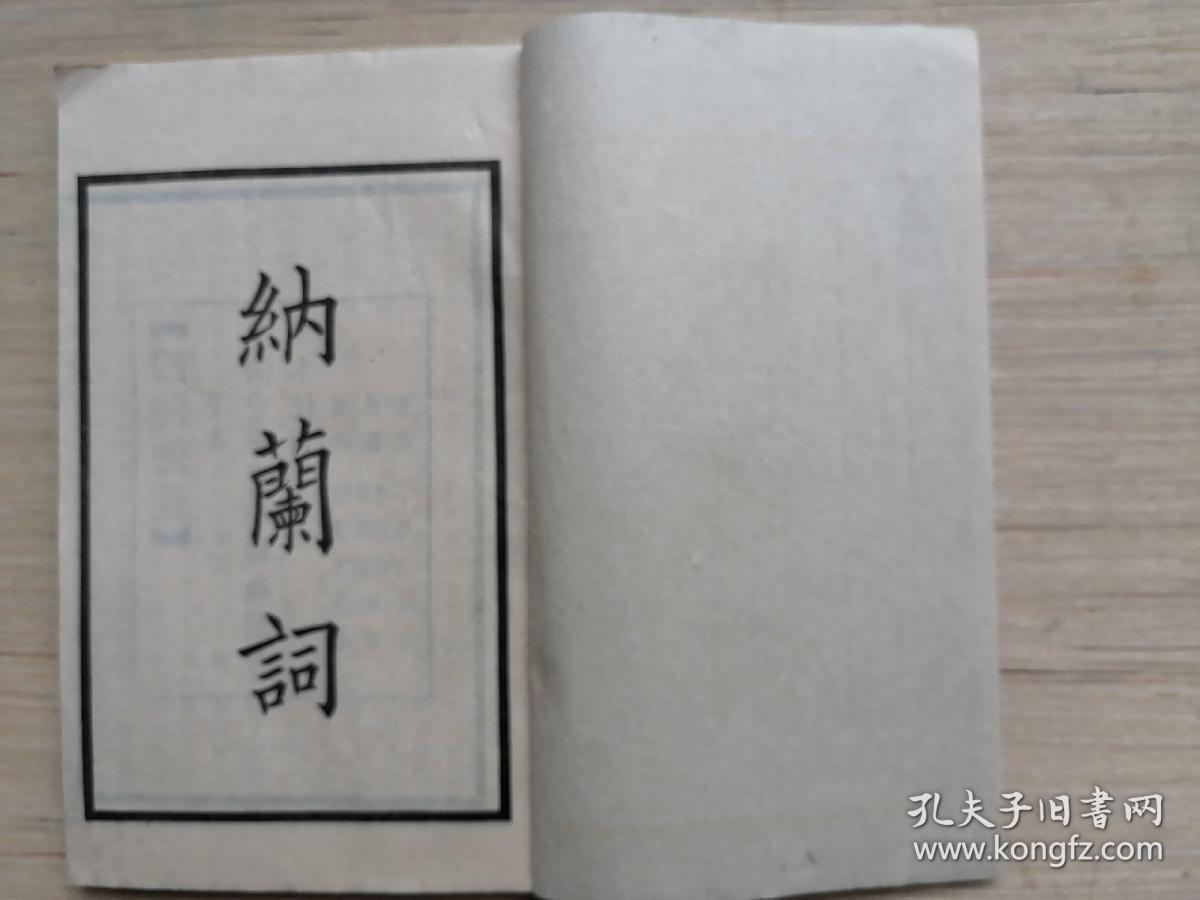 納蘭詞
孔夫子旧书网
www.kongfz.com